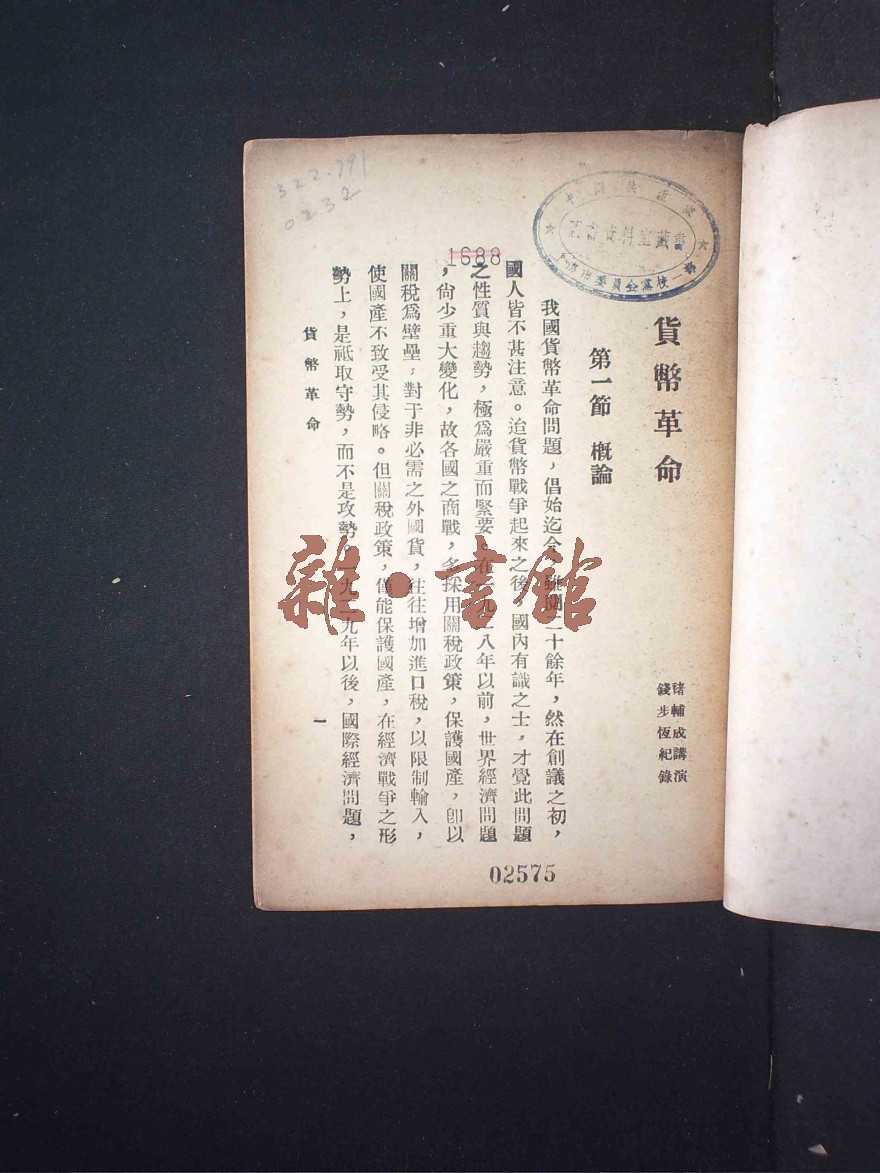 貨幣革命
褚輔成講演
錢步恆紀錄
第一節 概論
我國貨幣革命問題，倡始迄今，雖閱二十餘年，然在創議之初，
國人皆不甚注意。迨貨幣戰爭起來之後，國內有識之士，才覺此問題
之性質與趨勢，極爲嚴重而緊要。在一九一八年以前，世界經濟問題
，尙少重大變化，故各國之商戰，多採用關稅政策，保護國產，卽以
關稅爲壁壘，對于非必需之外國貨，往往增加進口稅，以限制輸入，
使國產不致受其侵略。但關稅政策，僅能保護國產，在經濟戰爭之形
勢上，是祇取守勢，而不是攻勢。一九二九年以後，國際經濟問題，
貨幣革命
一
322.791
0232
1688
02575
雜·書館